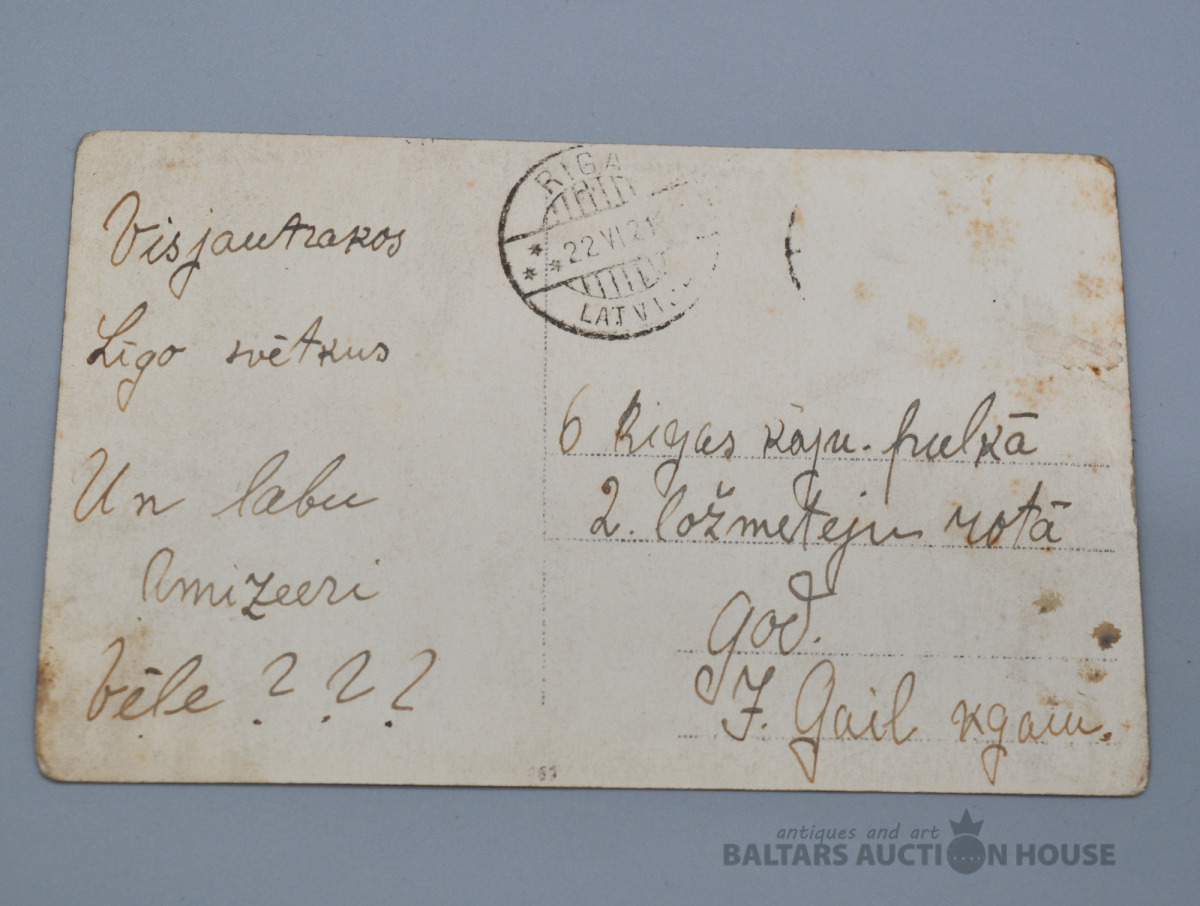 Visjautrakos
Līgo svētkus
Un labu
Amizeeri
Vēle ? ? ?
RIGA
22 VI 21
LATVI
6 Rigas kāju. pulkā
2. ložmeteju rotā
god.
J. Gail kgam.
antiques and art
BALTARS AUCTION HOUSE